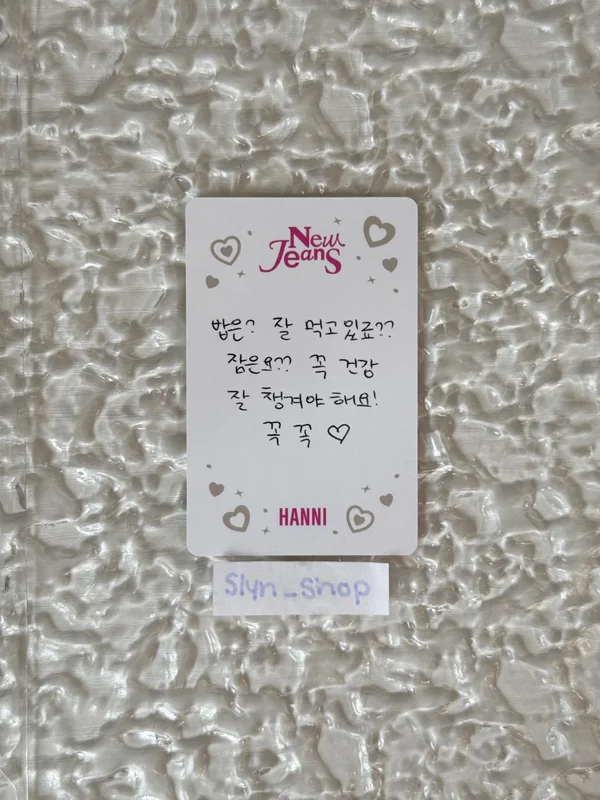 New
Jeans
밥은? 잘 먹고있죠??
잠은요?? 꼭 건강
잘 챙겨야 해요!
꼭 꼭 ♡
HANNI
Slyn_Shop